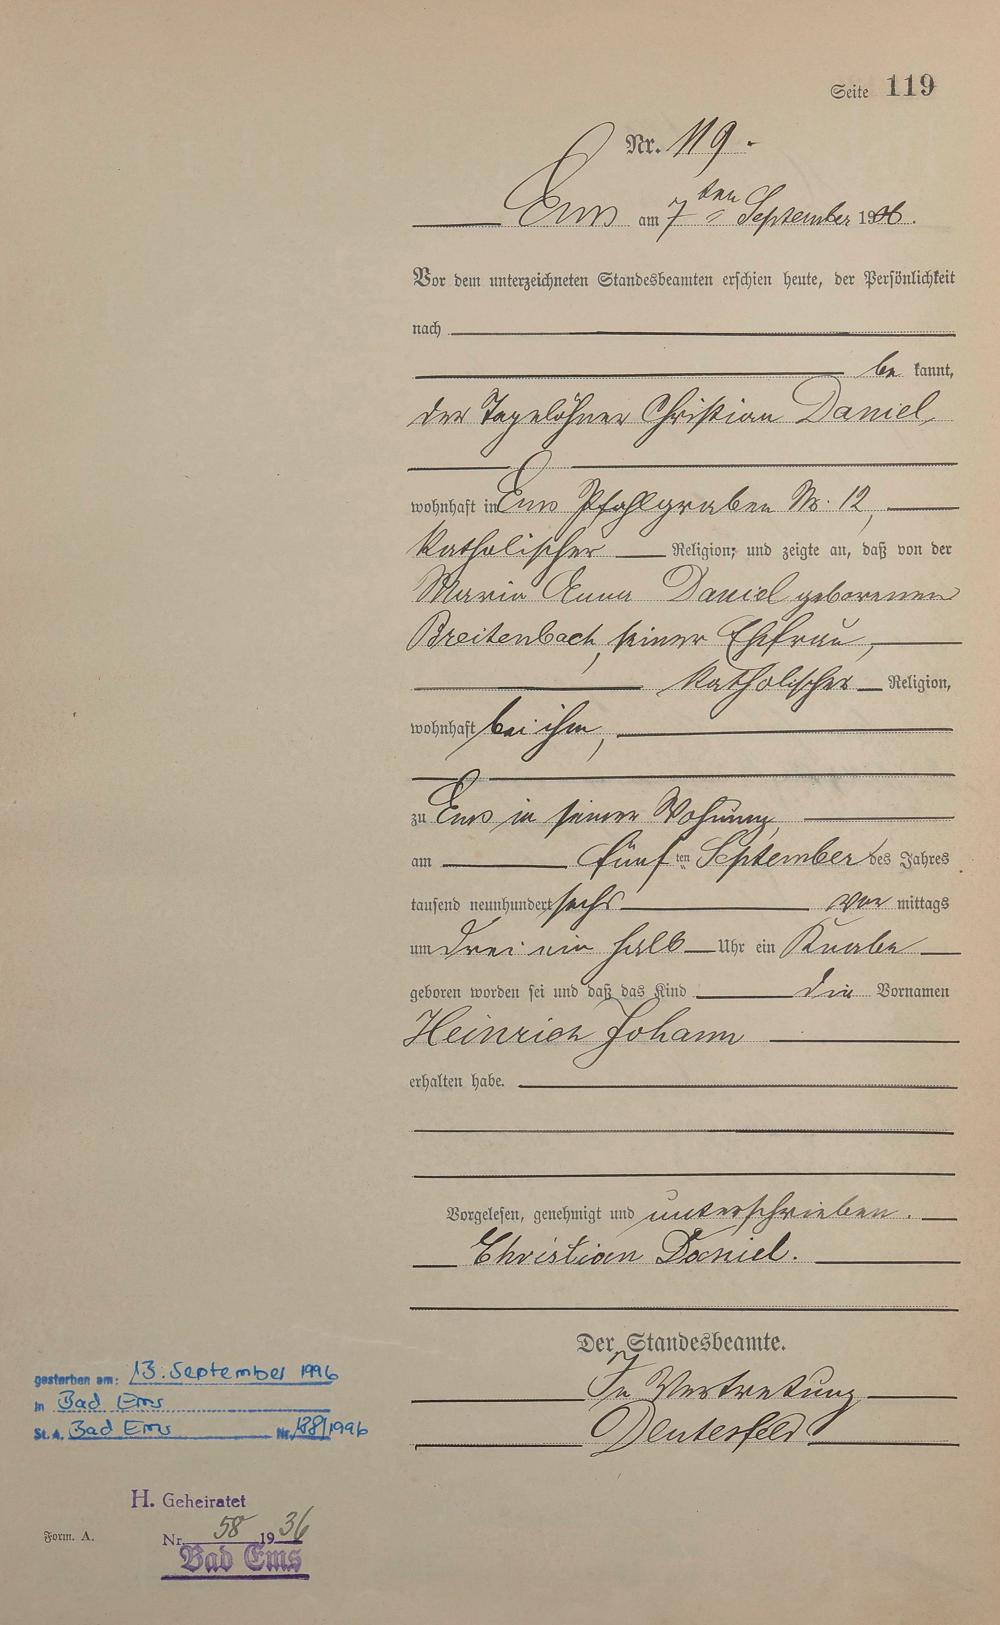 Seite 119
Nr. 119.
Ems am 7ten September 1906.
Vor dem unterzeichneten Standesbeamten erschien heute, der Persönlichkeit
nach
be kannt,
der Tagelöhner Christian Daniel,
wohnhaft in Ems Pfahlgraben Nr. 12,
katholischer Religion, und zeigte an, daß von der
Maria Anna Daniel geborenen
Breitenbach, seiner Ehefrau,
katholischer Religion,
wohnhaft bei ihm,
zu Ems in seiner Wohnung,
am fünf ten September des Jahres
tausend neunhundert sechs vor mittags
um drei ein halb Uhr ein Knabe
geboren worden sei und daß das Kind die Vornamen
Heinrich Johann
erhalten habe.
Vorgelesen, genehmigt und unterschrieben.
Christian Daniel.
Der Standesbeamte.
In Vertretung
gestorben am: 13. September 1996
in Bad Ems
St.A. Bad Ems Nr. 188/1996
H. Geheiratet
Nr. 58 1936
Bad Ems
Form. A.